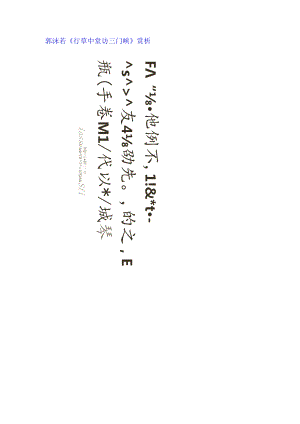 郭沫若《行草中堂访三门峡》赏析
F^ “⅛•他例不, 1!&*t•-
^s^>^友4⅛劭先。, 的之, E
瓶(手卷M1/代以*/城琴